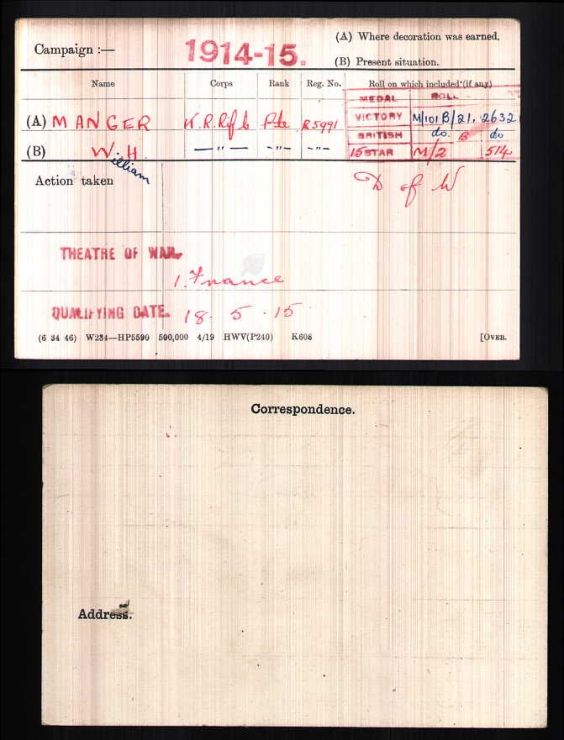 Campaign :— 1914-15. (A) Where decoration was earned.
(B) Present situation.
Name Corps Rank Reg. No. Roll on which included (if any)
MEDAL ROLL
(A) MANGER K.R.Rif C Pte R5991 VICTORY M/101B/21. 2632
BRITISH do. B do
(B) W.H. —"— -"- -"- 15 STAR M/2 514
William
Action taken D of W
THEATRE OF WAR.
1. France
QUALIFYING DATE. 18. 5. 15
(6 34 46) W234—HP5590 500,000 4/19 HWV(P240) K608 [OVER.
Correspondence.
Address.